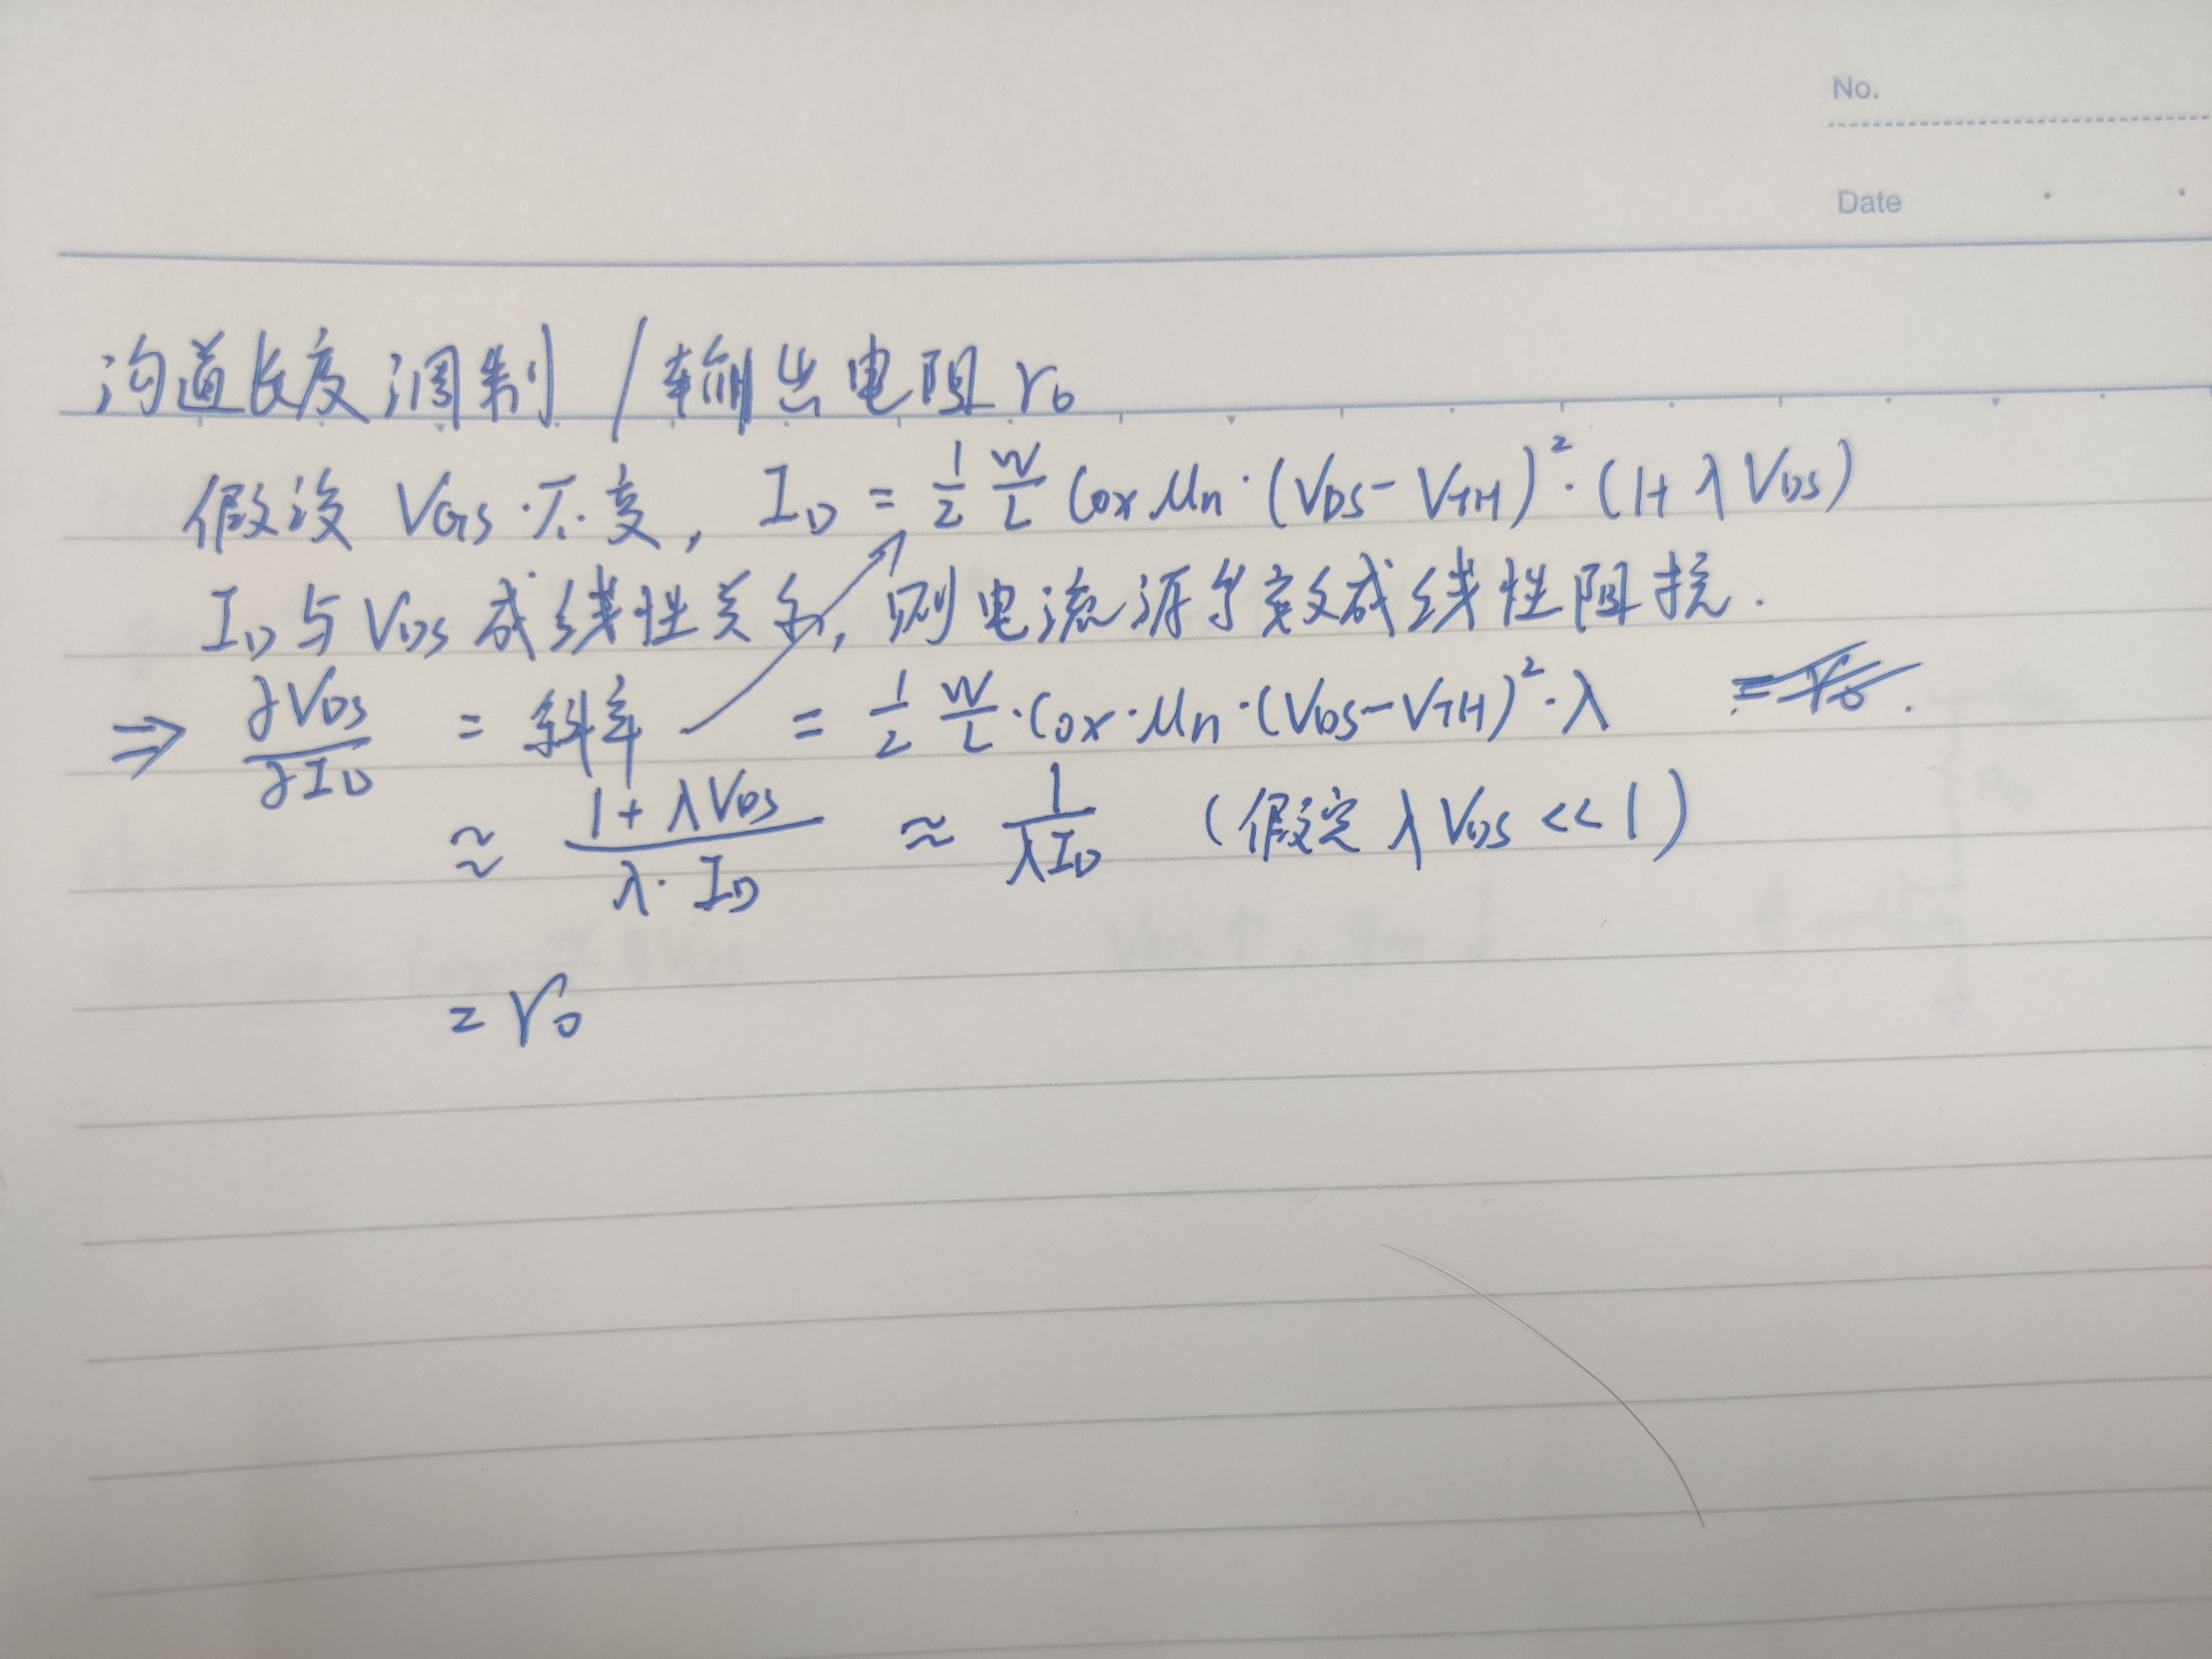 No.
Date
沟道长度调制 / 输出电阻 r₀
假设 VGS 不变, ID = 1/2 W/L Cox μn · (VDS - VTH)² · (1 + λ VDS)
ID 与 VDS 成线性关系, 则电流源等效成线性阻抗.
⇒ ∂VDS/∂ID = 斜率 = 1/2 W/L · Cox · μn · (VDS - VTH)² · λ = r₀.
≈ (1 + λ VDS)/(λ · ID) ≈ 1/(λID) (假定 λ VDS << 1)
= r₀